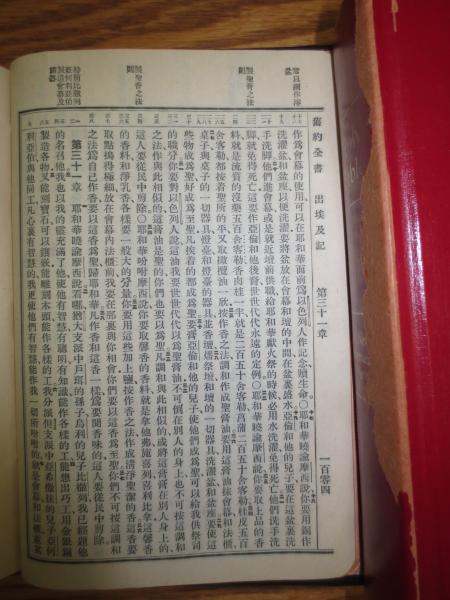 舊約全書 出埃及記 第三十一章 一百零四
作爲會幕的使用可以在耶和華面前爲以色列人作記念贖生命○耶和華曉諭摩西說你要用銅作
洗濯盆和盆座以便洗濯要將盆放在會幕和壇的中間在盆裏盛水亞倫和他的兒子要在這盆裏洗
手洗脚他們進會幕或是就近壇前供職給耶和華獻火祭的時候必用水洗濯免得死亡他們洗手洗
脚就免得死亡這要作亞倫和他後裔世世代代永遠的定例○耶和華曉諭摩西說你要取上品的香
料就是流質的沒藥五百舍客勒香肉桂一半就是二百五十舍客勒菖蒲二百五十舍客勒桂皮五百
舍客勒都按着聖所的平又取橄欖油一欣按作香之法調和作成聖膏油要用這膏油抹會幕和法櫃
桌子與桌子的一切器具燈臺和燈臺的器具並香壇燔祭壇和壇的一切器具洗濯盆和盆座要使這
些物成爲聖好成爲至聖凡挨着的都成爲聖要膏亞倫和他的兒子使他們成爲聖可以給我供祭司
的職分你要對以色列人說這油我要世世代代以爲聖膏油不可倒在別人的身上也不可按這調和
之法作與此相似的這膏油是聖的你們也要以爲聖凡調和與此相似的或將這膏膏在別人身上的
這人要從民中剪除○耶和華吩咐摩西說你要取馨香的香料就是拿他弗施喜列喜利比拿這馨香
的香料和淨乳香各樣要一般大的分量你要用這些加上鹽按作香之法作成清淨聖潔的香這香要
取點搗得極細放在會幕內法櫃前我要在那裏與你相會你們要以這香爲至聖你們不可按這調和
之法爲自己作香要以這香爲聖歸耶和華凡作香和這香一樣爲要聞香味的這人要從民中剪除
第三十一章 耶和華曉諭摩西說看哪猶大支派中戶珥的孫子烏利的兒子比撒列我已經題他
的名召他我也以我的靈充滿了他使他有智慧有聰明有知識能作各樣的工能想出巧工用金銀銅
製造各物又能刻寶石可以鑲嵌能雕刻木頭能作各樣的工我分派但支派中亞希撒抹的兒子亞何
利亞伯與他同工凡心裏有智慧的我更使他們有智慧能作我一切所吩咐的就是會幕和法櫃並其
製聖膏之法
製聖香之法